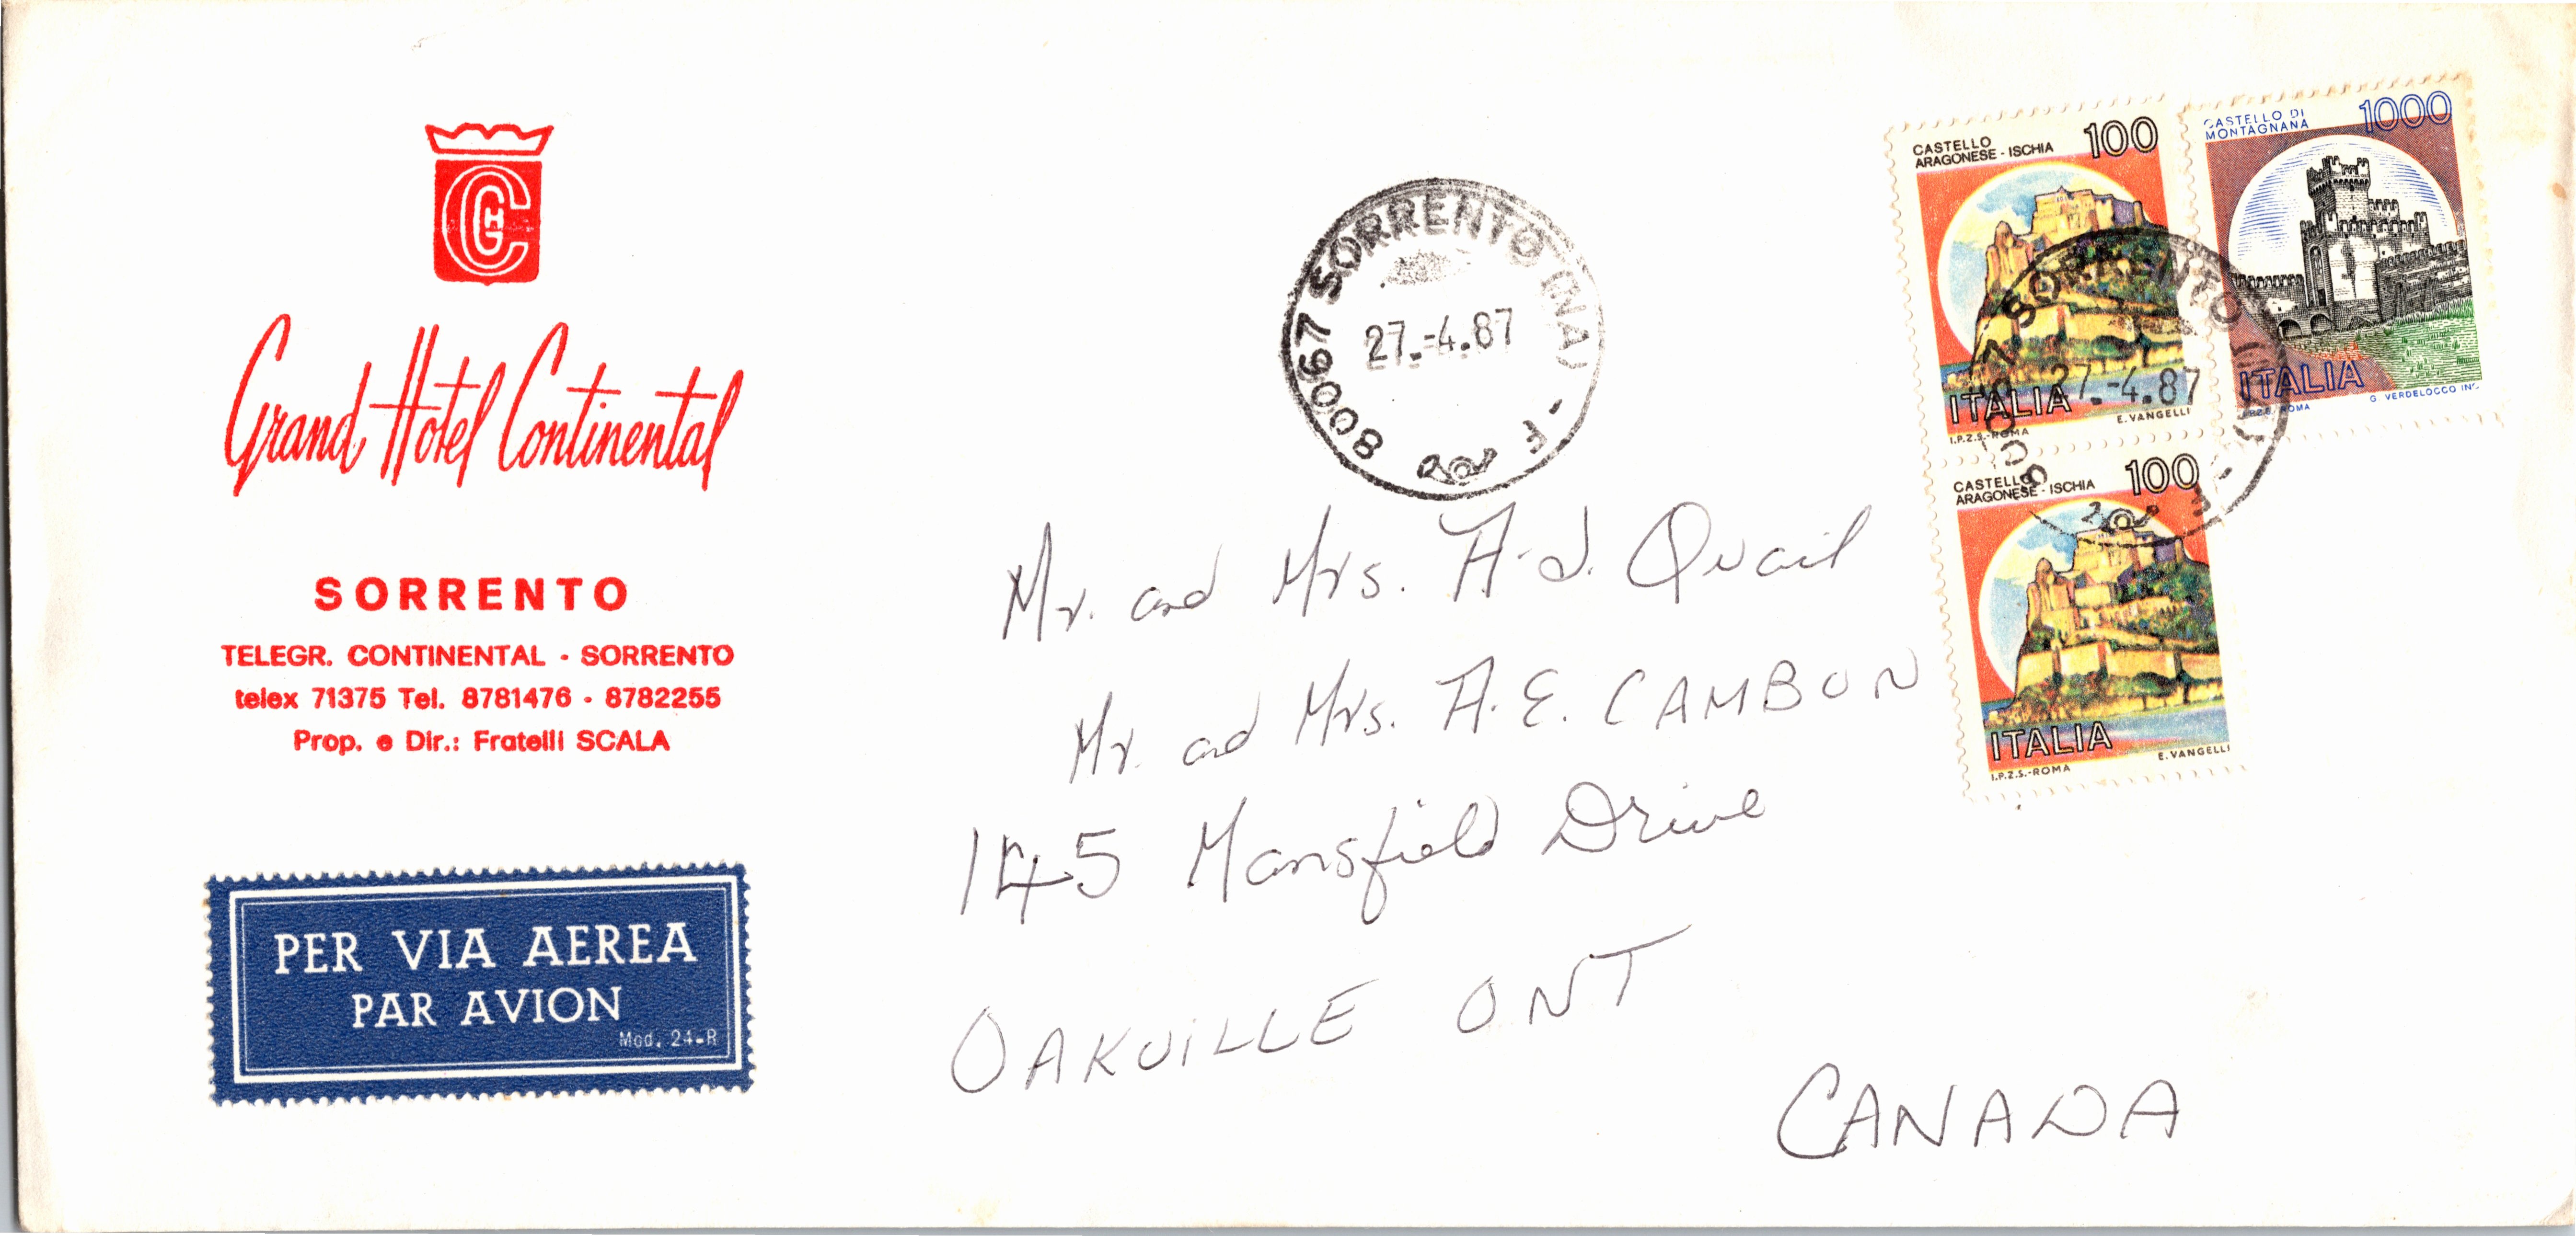 Grand Hotel Continental
SORRENTO
TELEGR. CONTINENTAL - SORRENTO
telex 71375 Tel. 8781476 - 8782255
Prop. e Dir.: Fratelli SCALA
PER VIA AEREA
PAR AVION
Mod. 24-R
80067 SORRENTO (NA) - F
27.-4.87
CASTELLO
ARAGONESE - ISCHIA 100
ITALIA
I.P.Z.S.-ROMA E. VANGELLI
CASTELLO DI
MONTAGNANA 1000
ITALIA
I.P.Z.S. ROMA G. VERDELOCCO INC.
SORRENTO
27.-4.87
CASTELLO
ARAGONESE - ISCHIA 100
ITALIA
I.P.Z.S.-ROMA E. VANGELLI
Mr. and Mrs. A.J. Quail
Mr. and Mrs. A.E. CAMBON
145 Mansfield Drive
OAKViLLE ONT
CANADA